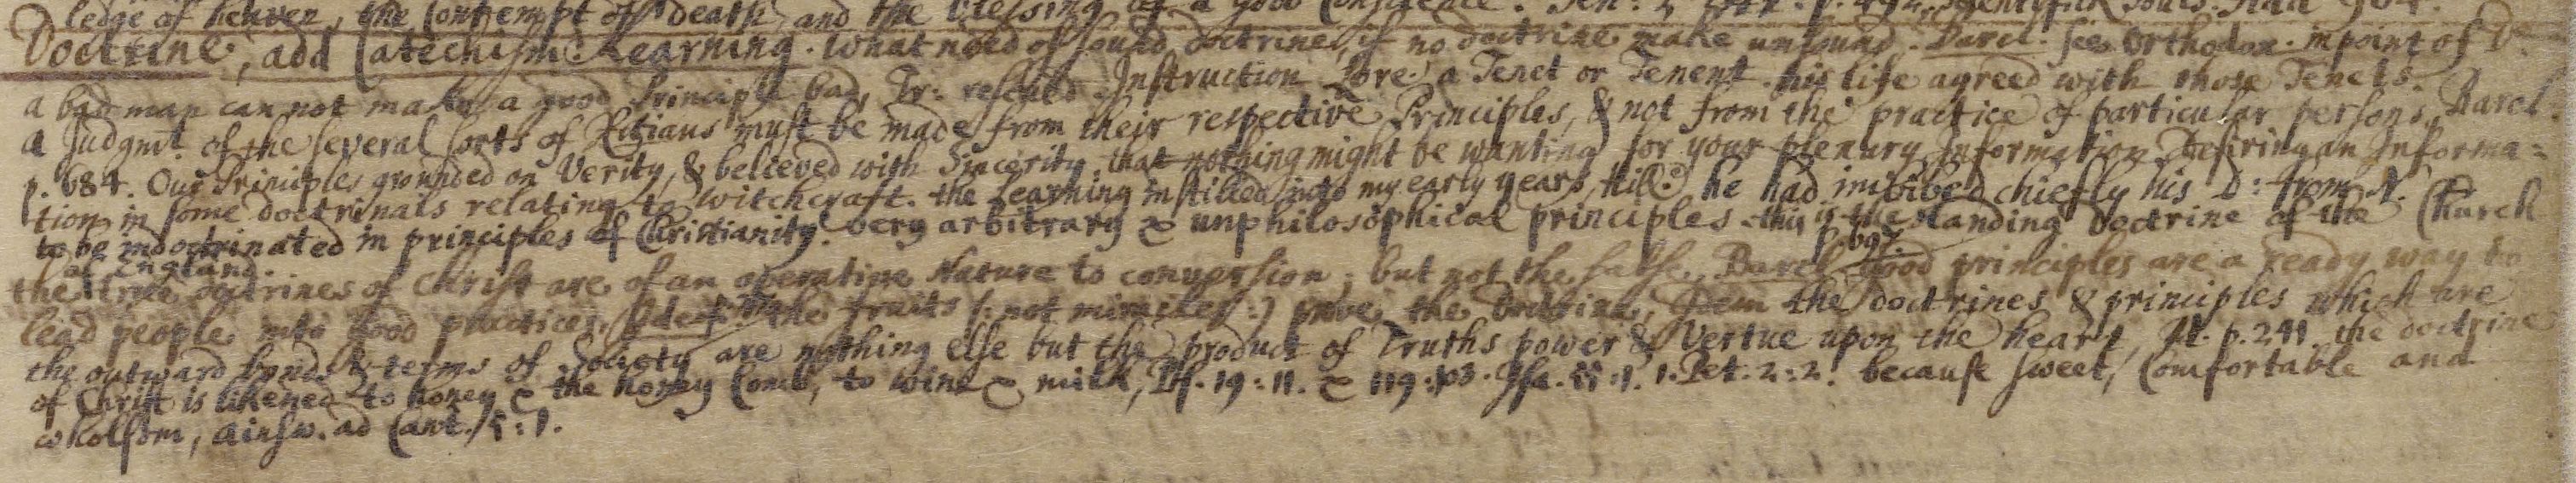 ledge of heaven, the Contempt of death, and the blessing of a good Conscience.
Doctrine, add Catechism. Learning. what need of sound doctrine, if no doctrine make unsound. Barcl. see Orthodox. in point of D.
a bad man can not make a good Principle bad, Tr: rescued. Instruction. Lore. a Tenet or Tenent. his life agreed with those Tenets.
a Judgmt. of the several sorts of Xstians must be made from their respective Principles, & not from the practice of particular persons, Barcl.
p. 684. Our Principles grounded on Verity, & believed with Sincerity. that nothing might be wanting for your plenary Information. Desiring an Informa=
tion in some doctrinals relating to witchcraft. the Learning instilled into my early years, Hill. he had imbibed chiefly his D: from A.
to be indoctrinated in principles of Christianity. very arbitrary & unphilosophical principles. this is the standing doctrine of the Church
of England.
p. 697.
the true doctrines of Christ are of an operative Nature to conversion, but not the false, Barcl. good principles are a ready way to
lead people into good practices, Idem. the fruits (: not miracles :) prove the Doctrine, Idem the doctrines & principles which are
the outward bonds & terms of Society are nothing else but the product of Truths power & Vertue upon the heart, It. p. 241. the doctrine
of Christ is likened to honey & the honey Comb, to wine & milk, Ps. 19: 11. & 119: 103. Isa. 55: 1. 1. Pet. 2: 2. because sweet, Comfortable and
wholsom, Ainsw. ad Cant. 5: 1.